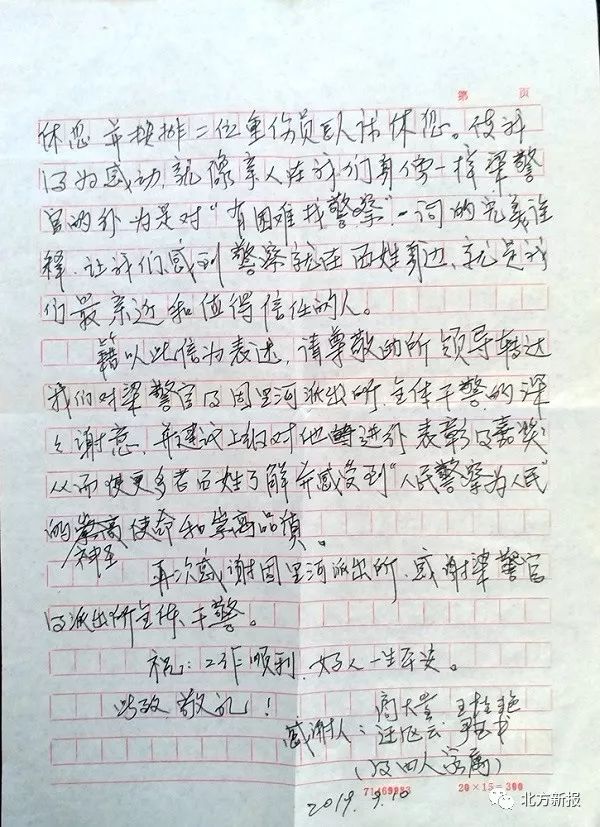 第 页
休息并按排二位重伤员卧床休息。使我
们为感动,就像亲人在我们身傍一样梁警
官的行为是对"有困难找警察"一词的完美诠
释,让我们感到警察就在百姓身边,就是我
们最亲近和值得信任的人。
籍以此信为表述,请尊敬的所领导转达
我们对梁警官及图里河派出所全体干警的深
深谢意,并建议上级对他进行表彰及嘉奖,
从而使更多老百姓了解并感受到"人民警察为人民"
的神圣使命和崇高品质。
再次感谢图里河派出所,感谢梁警官
及派出所全体干警。
祝:工作顺利,好人一生平安。
此致敬礼!
感谢人:
(及四人家属)
2019.9.10
71469983 20×15=300
北方新报